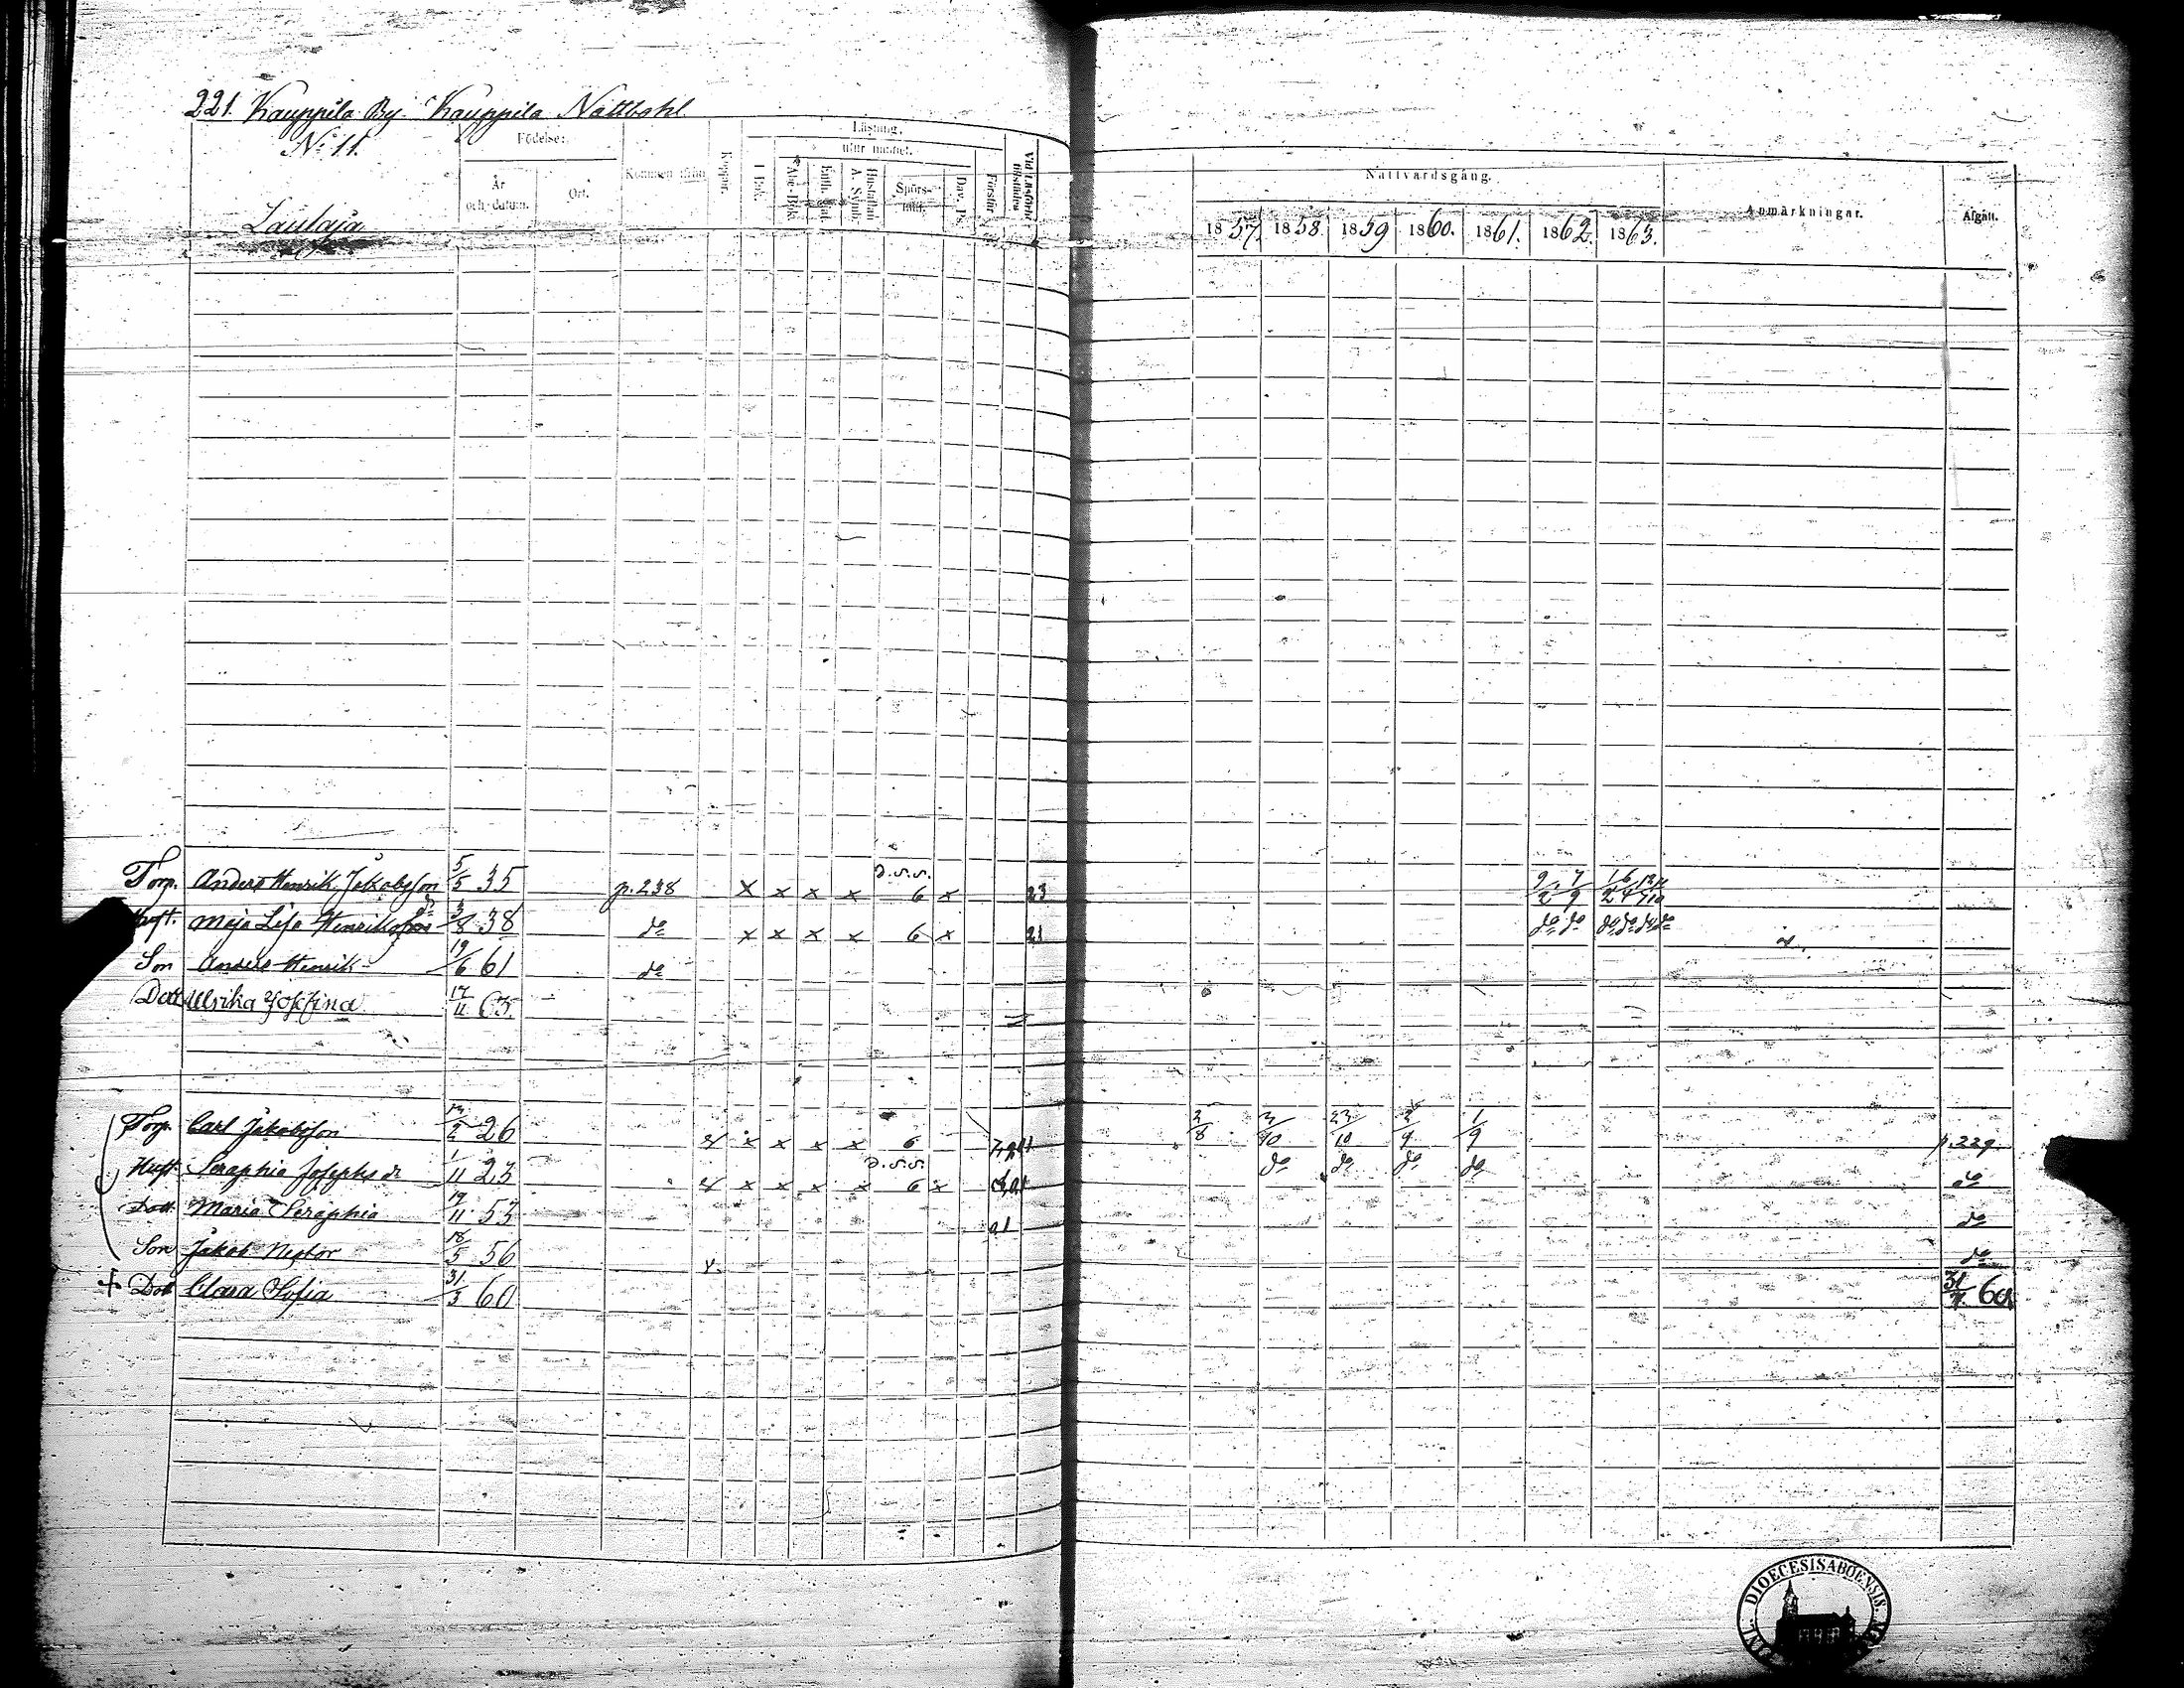 221. Kauppila By. Kauppila Nattbohl
No 11.
Laulaja
Födelse:
År och datum.
Ort.
Kommen ifrån
Koppor.
Läsning,
I Bok.
utur minnet.
Abc-Bok.
Luth. Cat.
Hustaflan. A. Symb.
Spörs-mål.
Dav. Ps.
Förstår
Nattvardsgång.
1857. 1858. 1859 1860. 1861. 1862. 1863.
Anmärkningar.
Afgått.
Torp. Anders Henrik Jakobsson 5/5 35 p. 238 x x x x D.S.S. 6 x 23 9/2 7/9
Hust. Maja Lisa Henriks dr 3/8 38 do x x x x 6 x 21 do do do do do do
Son Anders Henrik 19/6 61 do
Dott Ulrika Josefina 17/11 63.
Torp. Carl Jakobsson 26 x x x x 6 2/8 3/10 23/10 2/9 1/9 p. 229.
Hust. Seraphia Josephs dr 1/11 23 x x x x D.S.S. 6 x do do do do do
Dott. Maria Seraphia 19/11 53 do
Son Jakob Nestor 18/5 56 v. do
+ Dott Clara Sofia 31/3 60 60
DIOECESIS ABOENSIS.